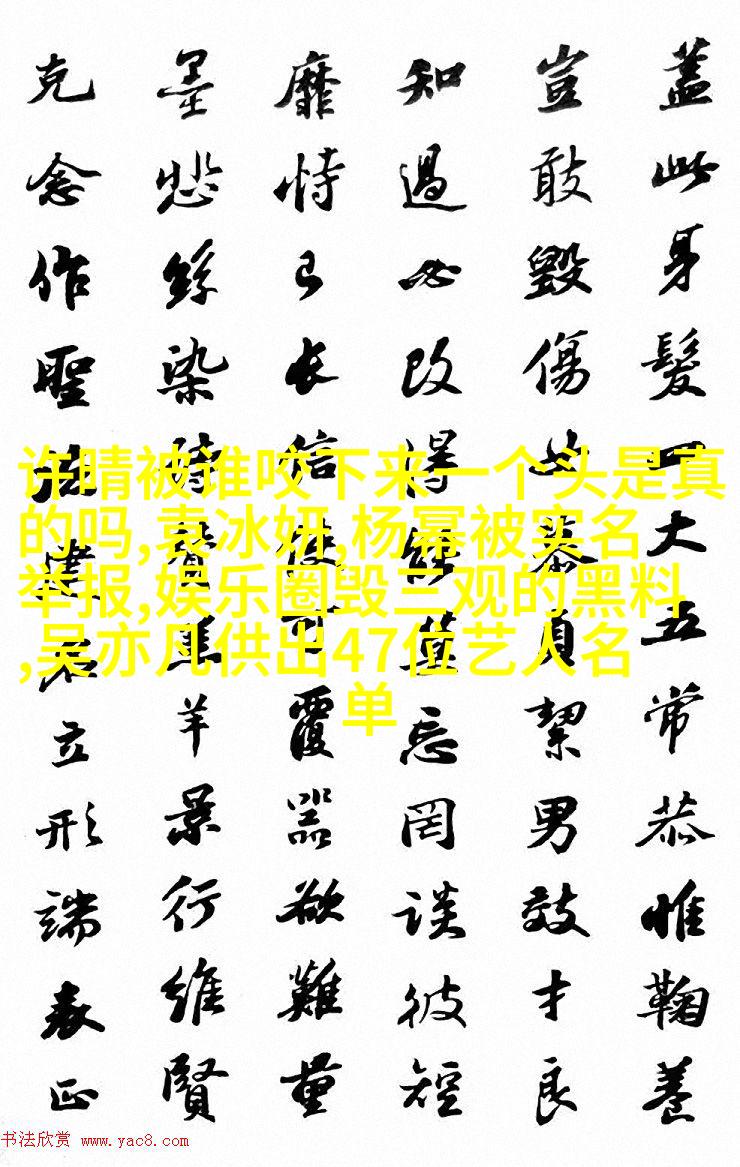 蓋此身髮四大五常恭惟鞠養
豈敢毀傷女慕貞絜男效才良
知過必改得能莫忘罔談彼短
靡恃己長信使可覆器欲難量
墨悲絲染詩讚羔羊景行維賢
克念作聖德建名立形端表正
许晴被谁咬下来一个头是真
的吗,袁冰妍,杨幂被实名
举报,娱乐圈毁三观的黑料
,吴亦凡供出47位艺人名
单
书法欣赏 www.yac8.com